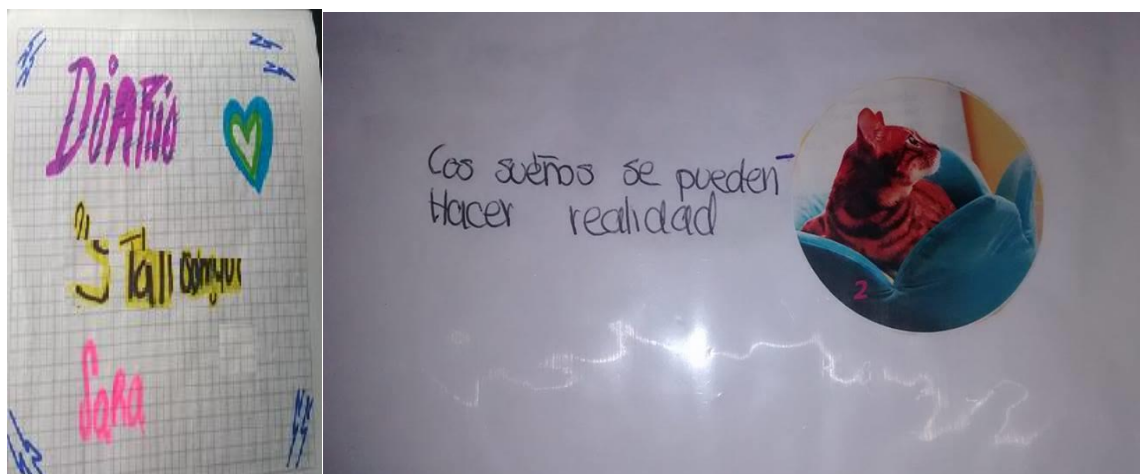 Diario
Sara
Los sueños se pueden
Hacer realidad
2